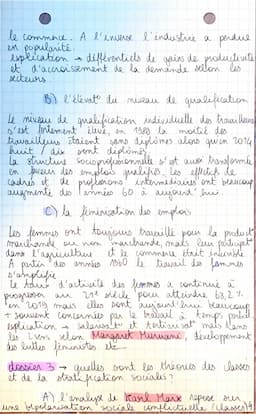 le commerce. A l'inverse l'industrie a perdu
en popularité.
explication → différentiels de gains de productivité
et d'accroissement de la demande selon les
secteurs
B) l'élévat° du niveau de qualification
Le niveau de qualification individuelle des travailleurs
s'est fortement élevé, en 1983 la moitié des
travailleurs étaient sans diplômes alors qu'en 2019
huit / dix sont diplômés.
La structure socioprofessionnelle s'est aussi transformée
en faveur des emplois qualifiés. Les effectifs de
cadres et de professions intermédiaires ont beaucoup
augmenté des années 60 à aujourd'hui.
C) la féminisation des emplois
Les femmes ont toujours travaillé pour la product°
marchande ou non marchande, mais leur participat°
dans l'agriculture et le commerce était invisible
A partir des années 1960 le travail des femmes
s'amplifie
Le taux d'activité des femmes a continué à
progresser au 21e siècle pour atteindre 68,2 %
en 2019 mais elles sont aujourd'hui beaucoup
+ souvent concernées par le travail à temps partiel
explication → salariat° et tertiarisat° mais dans
les selon Margaret Maruani, développement
des luttes féministes etc
dossier 3 → quelles sont les théories des classes
et de la stratification sociales?
A) l'analyse de Karl Marx repose sur
une bipolarisation sociale conflictuelle (classes)